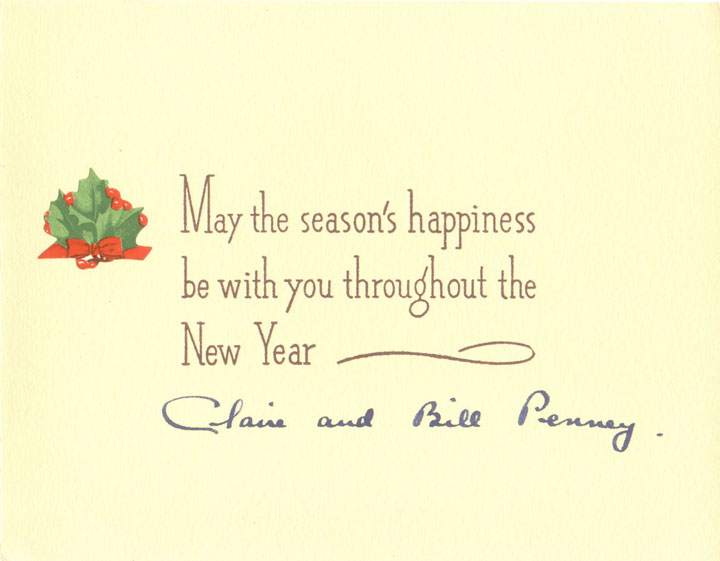 May the season's happiness
be with you throughout the
New Year
Claire and Bill Penney.